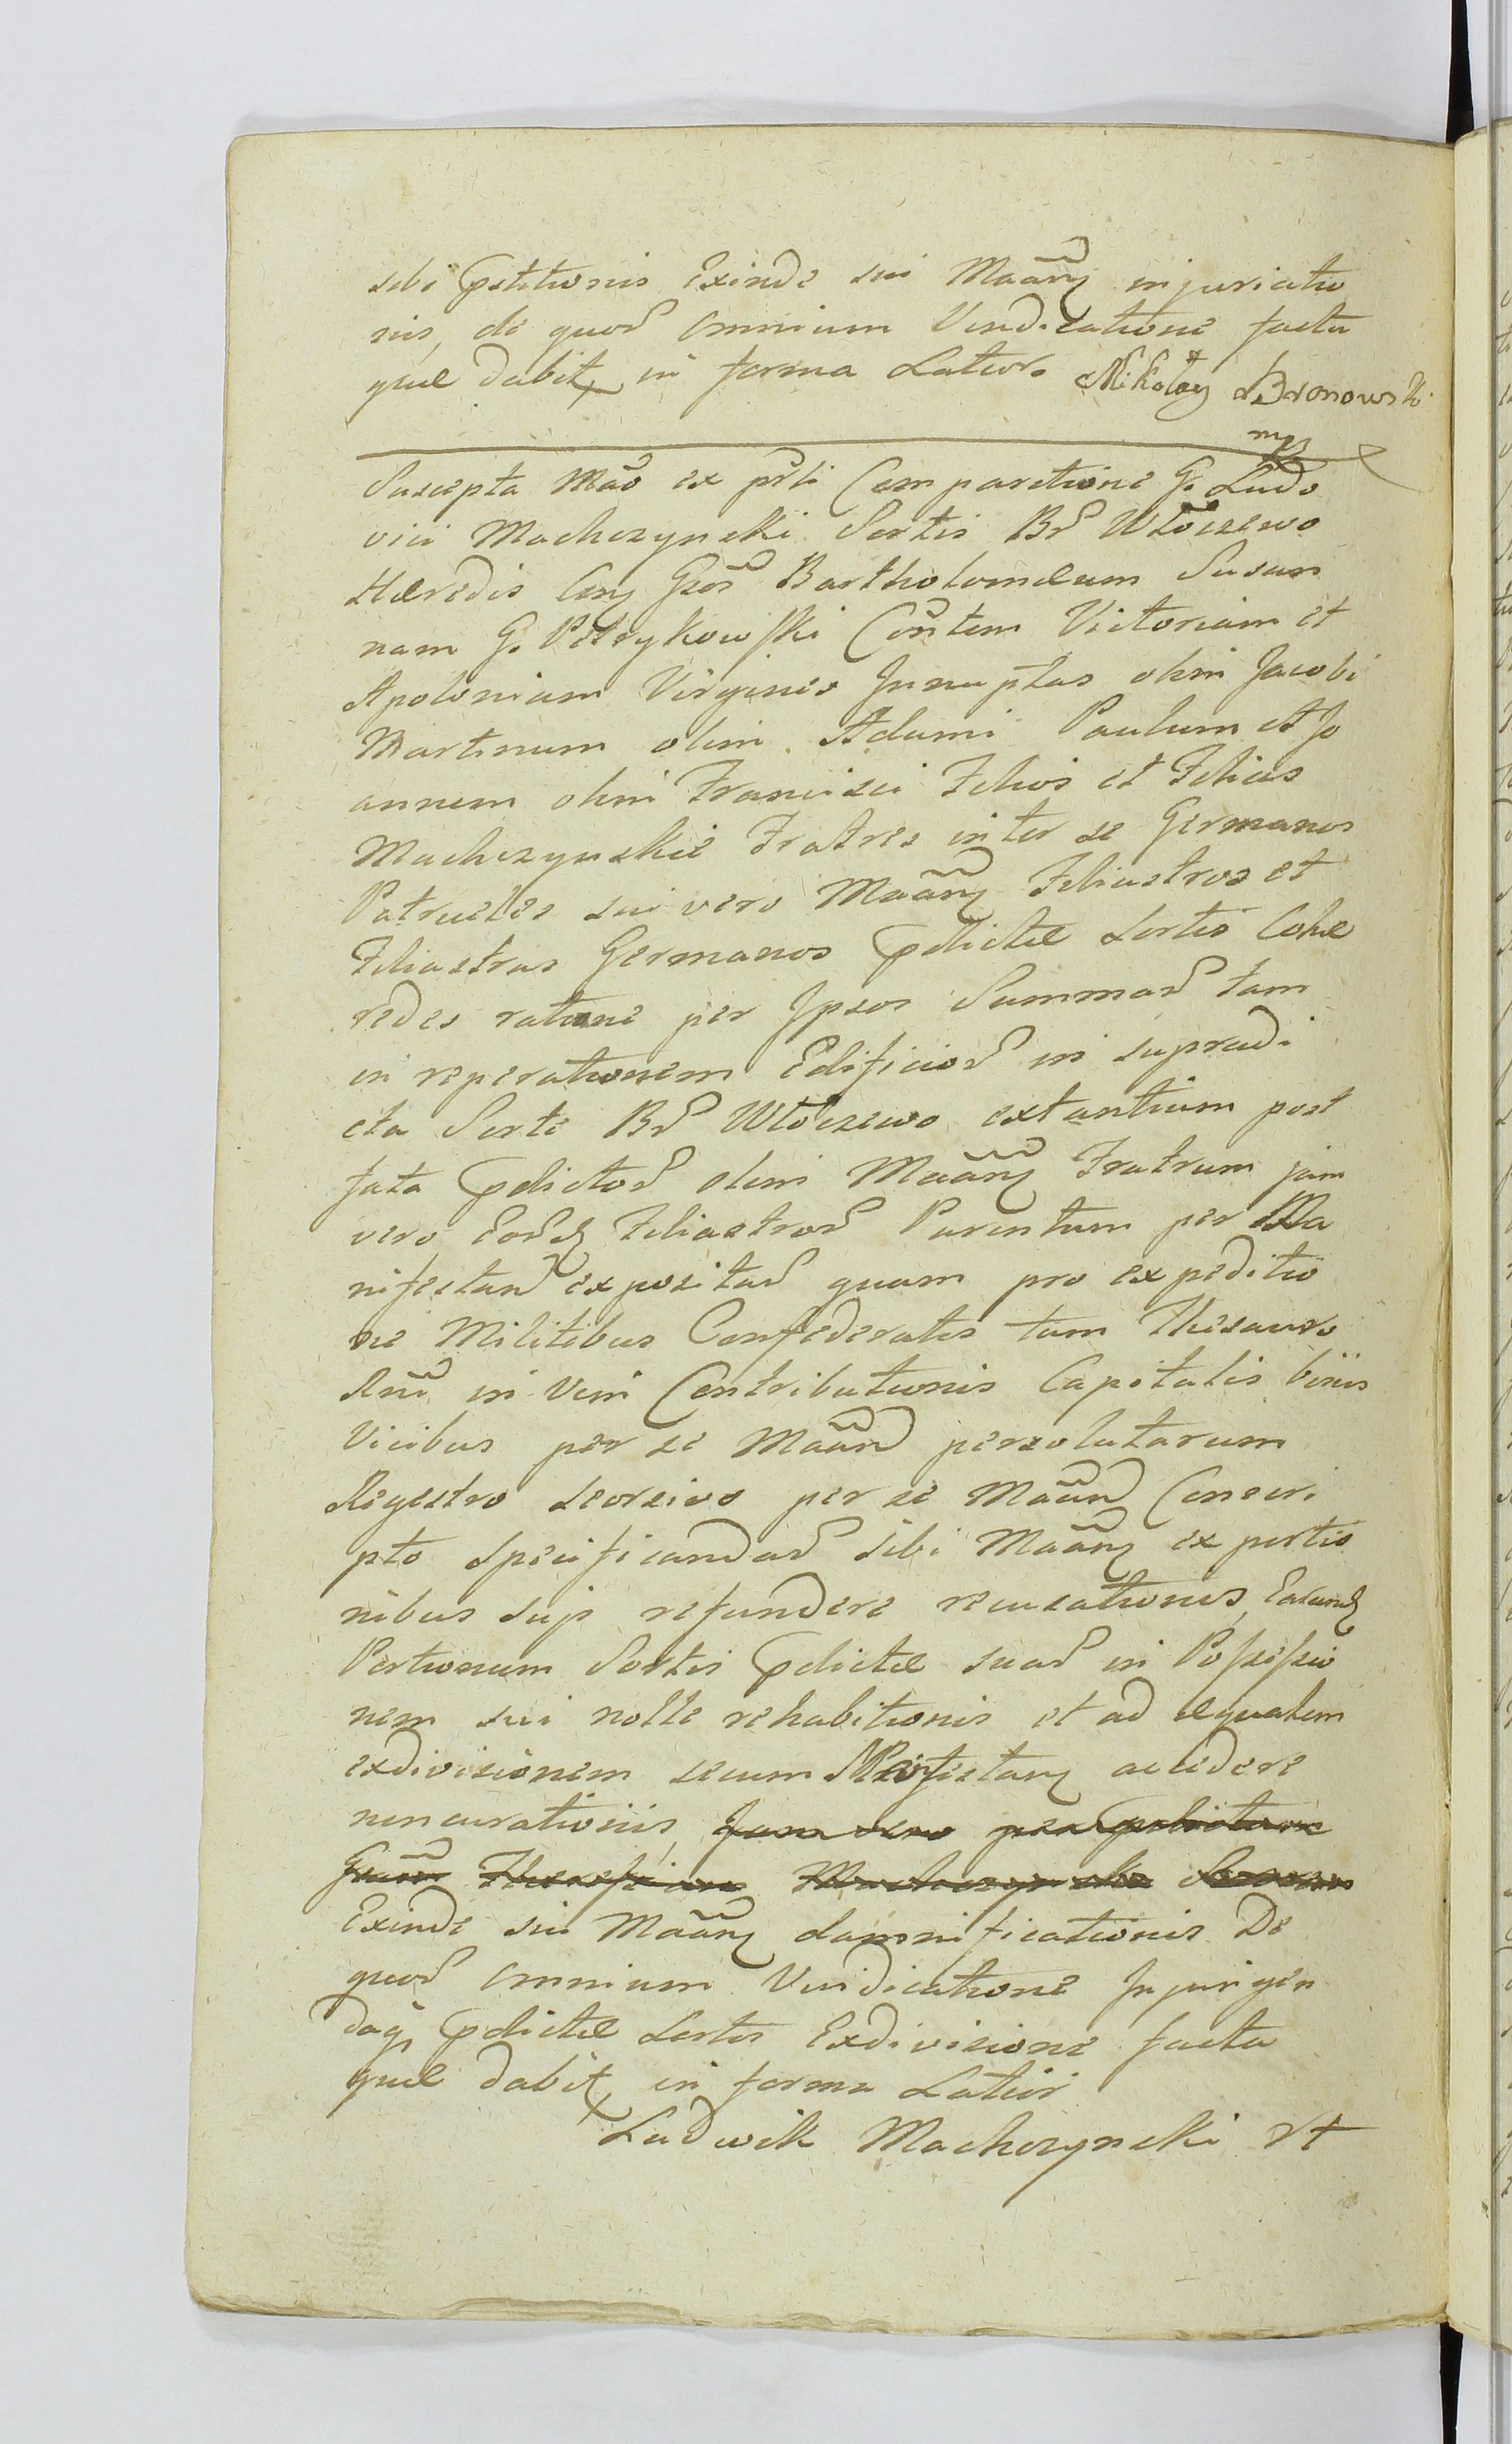 sibi Petitionis Exinde sui Maãnʒ injuriatio
nis, de quoꝝ omnium Vindicatione facta
quæ dabitꝶ in forma Latior. Mikołay Bronowski
mpp
Suscepta Mão ex pñti Comparitione G. Ludo
vici Machczynski Sortis Bꝝ Wtoczewo
Hæredis Cońʒ Gsõs Bartholomæum Susan
nam G. Petrykowski Cõntem Victoriam et
Apoloniam Virgines Innuptas olim Jacobi
Martinum olim Adami Paulum et Jo
annem olim Francisci Filios et Filias
Machczynskie Fratres inter se Germanos
Patrueles sui vero Maãnʒ Filiastros et
Filiastras Germanos Pdictæ Sortis Cohæ
redes ratione per Ipsos Summaꝝ tam
in reperationem Edificioꝝ in supradi
cta Sorte Bꝝ Wtoczewo extantium post
fata Pdictoꝝ olim Maãnʒ Fratrum jam
vero Eoꝝdʒ Filiastroꝝ Parentum per Ma
nifestan expositaꝝ quam pro expeditio
ne Militibus Confederatis tum Thesauro
Rñi in Vim Contributionis Capitalis binis
Vicibus per se Maãn persolutarum
Regestro seorsivo per se Maãn Conscri
pto Specificandaꝝ sibi Maãnʒ ex portio
nibus suis refundere recusationis, Earundʒ
Portionum Sortis Pdictæ suaꝝ in Possessio
nem sui nolle rehabitionis et ad æqualem
exdivisionem secum Manifestanʒ accedere
noncurationis, Jam vero per Pdictam
Exinde sui Maãnʒ damnificationis De
quoꝝ omnium Vindicatione Injurigen
daqʒ Pdictæ Sortis Exdivisione facta
quæ dabitꝶ in forma Latiori
Ludwik Machczynski